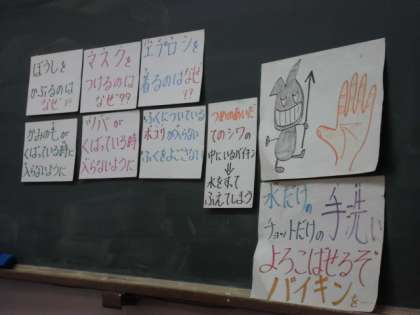 ぼうしを
かぶるのは
なぜ??
マスクを
つけるのは
なぜ??
エプロンを
着るのはなぜ
??
かみの毛が
くばっている時に
入らないように
ツバが
くばっている時に
入らないように
ふくについている
ホコリが入らない
ふくをよごさない
つめのあいだ
てのシワの
中にいるバイキン
⇓
水をすって
ふえてしまう
水だけの
チョットだけの
手洗い
よろこばせるぞ
バイキンを…